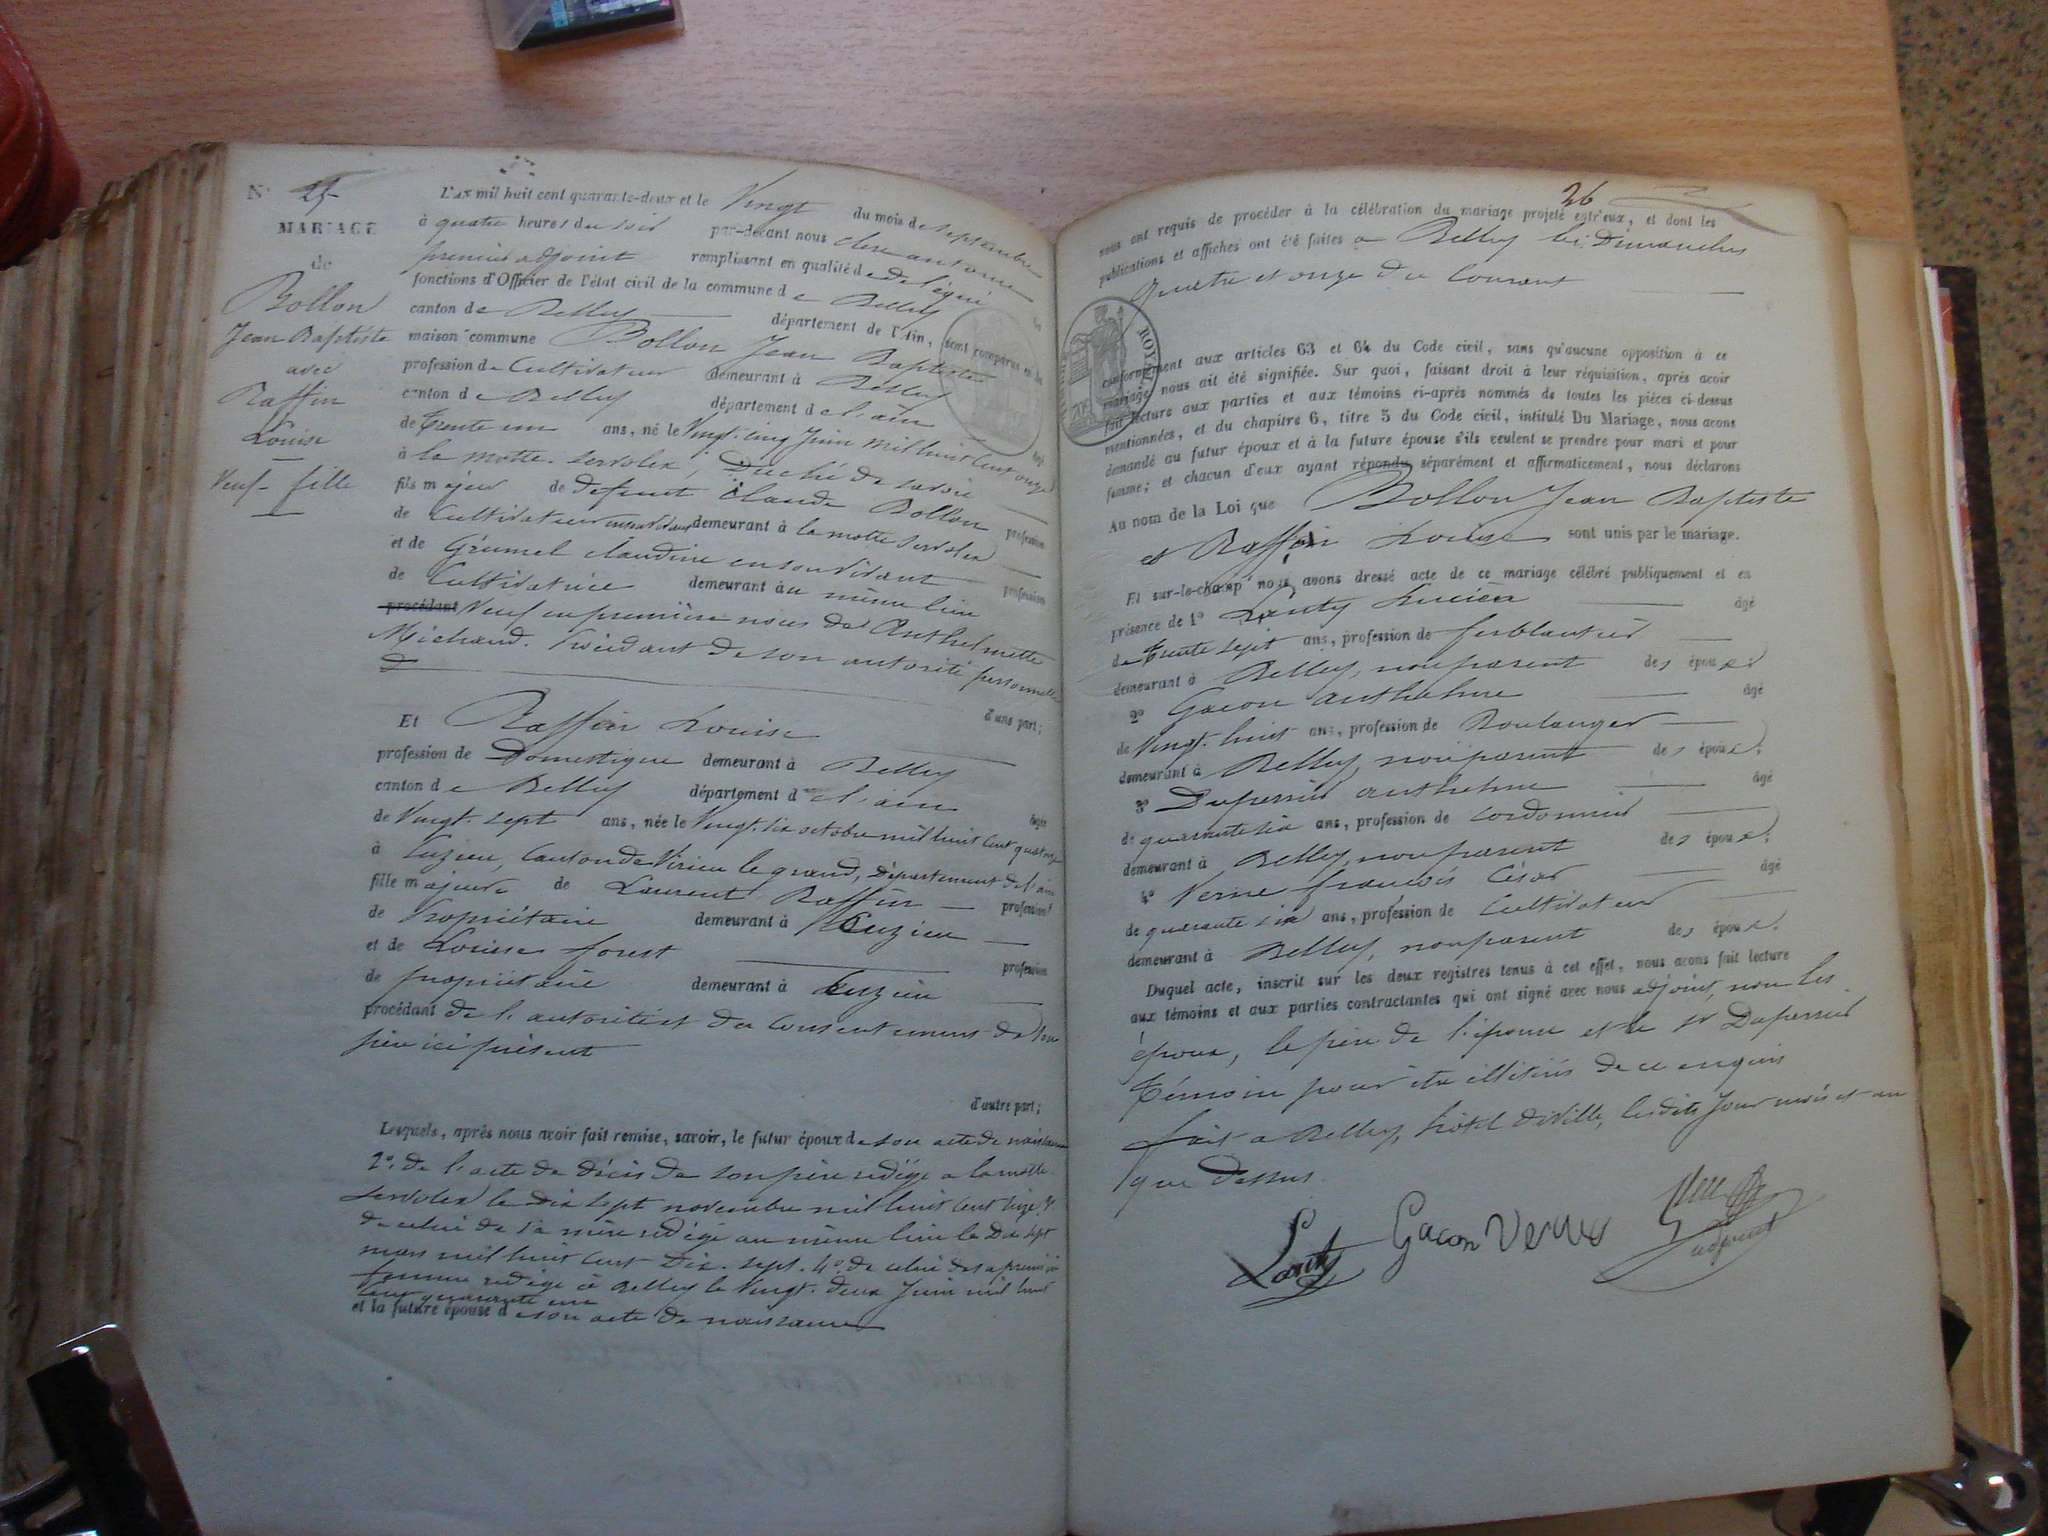 N° 25
MARIAGE
de
Bollon
Jean Baptiste
avec
Raffin
Louise
Veuf - fille
L'an mil huit cent quarante-deux et le Vingt du mois de septembre
à quatre heures du soir par-devant nous antoine
premier adjoint remplissant en qualité de délégué
fonctions d'Officier de l'état civil de la commune de Belley
canton de Belley département de l'Ain, sont comparus en la
maison commune Bollon Jean Baptiste
profession de Cultivateur demeurant à Belley
canton de Belley département de l'ain âgé
de trente un ans, né le Vingt-cinq Juin mil huit cent onze
à la motte-servolex Duché de Savoie
fils majeur de défunt Claude Bollon profession
de Cultivateur en son vivant demeurant à la motte servolex
et de Grumel claudine en son vivant profession
de Cultivatrice demeurant au même lieu
procédant Veuf en première noces de Anthelmette
Michaud. Procédant de son autorité personnelle
d'une part;
Et Raffin Louise
profession de Domestique demeurant à Belley
canton de Belley département de l'ain âgée
de Vingt-sept ans, née le Vingt-six octobre mil huit cent quatorze
à Cuzieu, Canton de Virieu le grand, Département de l'ain
fille majeure de Laurent Raffin profession
de Propriétaire demeurant à Cuzieu
et de Louise forest profession
de propriétaire demeurant à Cuzieu
procédant de l'autorité et du consentement de son
père ici présent
d'autre part;
Lesquels, après nous avoir fait remise, savoir, le futur époux de son acte de naissance
2° de l'acte de décès de son père rédigé a la motte-
servolex le dix sept novembre mil huit cent
de celui de sa mère rédigé au même lieu le Dix sept
mars mil huit cent Dix-sept. 4° de celui de sa première
femme rédigé à Belley le Vingt-deux Juin mil huit
cent quarante un
et la future épouse de son acte de naissance
26
nous ont requis de procéder à la célébration du mariage projeté entr'eux, et dont les
publications et affiches ont été faites a Belley les Dimanches
quatre et onze du Courant
ROYAL
conformément aux articles 63 et 64 du Code civil, sans qu'aucune opposition à ce
mariage nous ait été signifiée. Sur quoi, faisant droit à leur réquisition, après avoir
fait lecture aux parties et aux témoins ci-après nommés de toutes les pièces ci-dessus
mentionnées, et du chapitre 6, titre 5 du Code civil, intitulé Du Mariage, nous avons
demandé au futur époux et à la future épouse s'ils veulent se prendre pour mari et pour
femme; et chacun d'eux ayant répondu séparément et affirmativement, nous déclarons
Au nom de la Loi que Bollon Jean Baptiste
et Raffin Louise sont unis par le mariage.
Et sur-le-champ nous avons dressé acte de ce mariage célébré publiquement et en
présence de 1° Lanty Lucien âgé
de trente sept ans, profession de ferblantier
demeurant à Belley, non parent des époux
2° Gacon anthelme âgé
de Vingt-huit ans, profession de Boulanger
demeurant à Belley, non parent des époux;
3° Duperrier anthelme âgé
de quarante six ans, profession de cordonnier
demeurant à Belley, non parent des époux;
4° Verne françois César âgé
de quarante six ans, profession de Cultivateur
demeurant à Belley, non parent des époux.
Duquel acte, inscrit sur les deux registres tenus à cet effet, nous avons fait lecture
aux témoins et aux parties contractantes qui ont signé avec nous adjoint, non les
époux, le père de l'épouse et le sr Duperrier
témoin pour être illitérés de ce enquis
fait a Belley, hôtel de Ville, lesdits Jour mois et an
que dessus.
Lanty Gacon Verne
adjoint